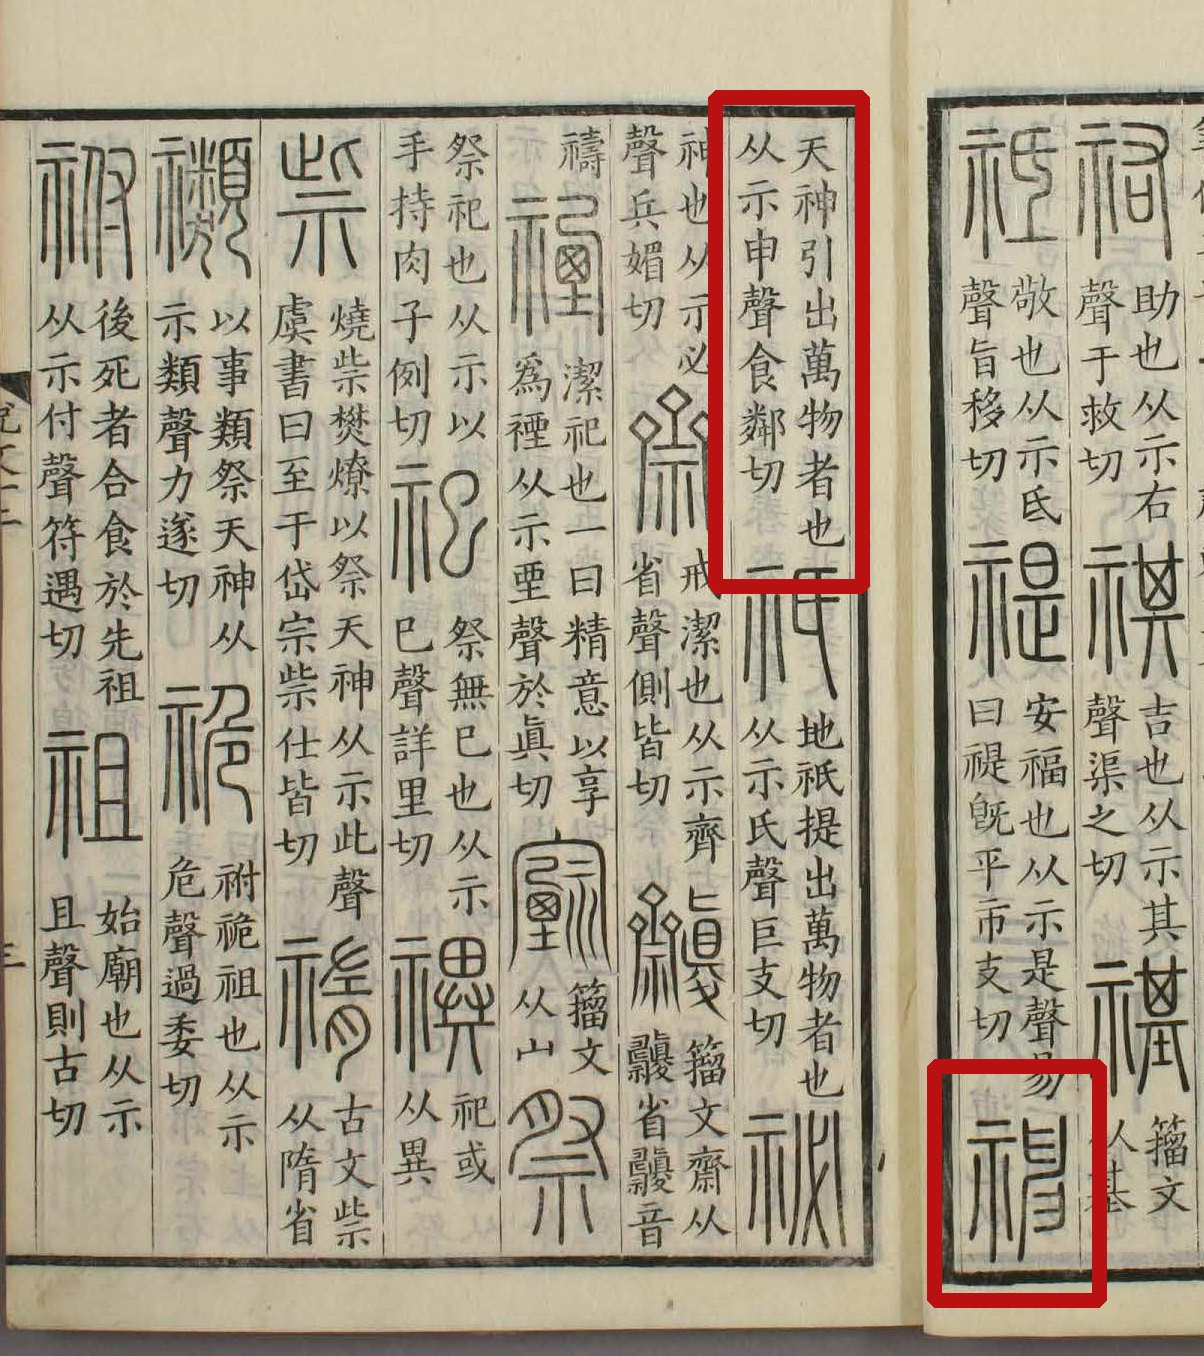 祐
助也从示右
聲于救切
祺
吉也从示其
聲渠之切
禥
籒文
从基
祗
敬也从示氐
聲旨移切
禔
安福也从示是聲易
曰禔旣平市支切
神
天神引出萬物者也
从示申聲食鄰切
祇
地祇提出萬物者也
从示氏聲巨支切
祕
神也从示必
聲兵媚切
齋
戒潔也从示齊
省聲側皆切
籒文齋从
省 音
禱
禋
潔祀也一曰精意以享
爲禋从示垔聲於眞切
籒文
从宀
祭
祭祀也从示以
手持肉子例切
祀
祭無巳也从示
巳聲詳里切
禩
祀或
从異
祡
燒祡樊燎以祭天神从示此聲
虞書曰至于岱宗祡仕皆切
古文祡
从隋省
禷
以事類祭天神从
示類聲力遂切
祪
祔祪祖也从示
危聲過委切
祔
後死者合食於先祖
从示付聲符遇切
祖
始廟也从示
且聲則古切